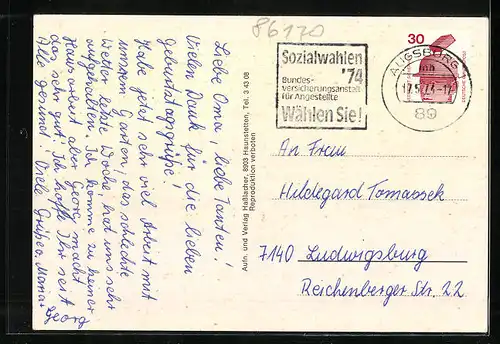 86170
Liebe Oma, liebe Tanten!
Vielen Dank für die lieben
Geburtstagsgrüße!
Habe jetzt sehr viel Arbeit mit
unserm Garten, das schlechte
Wetter letzte Woche, hat uns sehr
aufgehalten. Ich komme zu keiner
Hausarbeit aber Georg macht
das sehr gut! Ich hoffe Ihr seit
Alle gesund. Viele Grüße a. Maria + Georg
Aufn. und Verlag Haßlacher, 8903 Haunstetten, Tel. 3 43 08
Reproduktion verboten
Sozialwahlen
'74
Bundes-
versicherungsanstalt
für Angestellte
Wählen Sie!
30
AUGSBURG 1
89
An Frau
Hildegard Tomassek
7140 Ludwigsburg
Reichenberger Str. 22